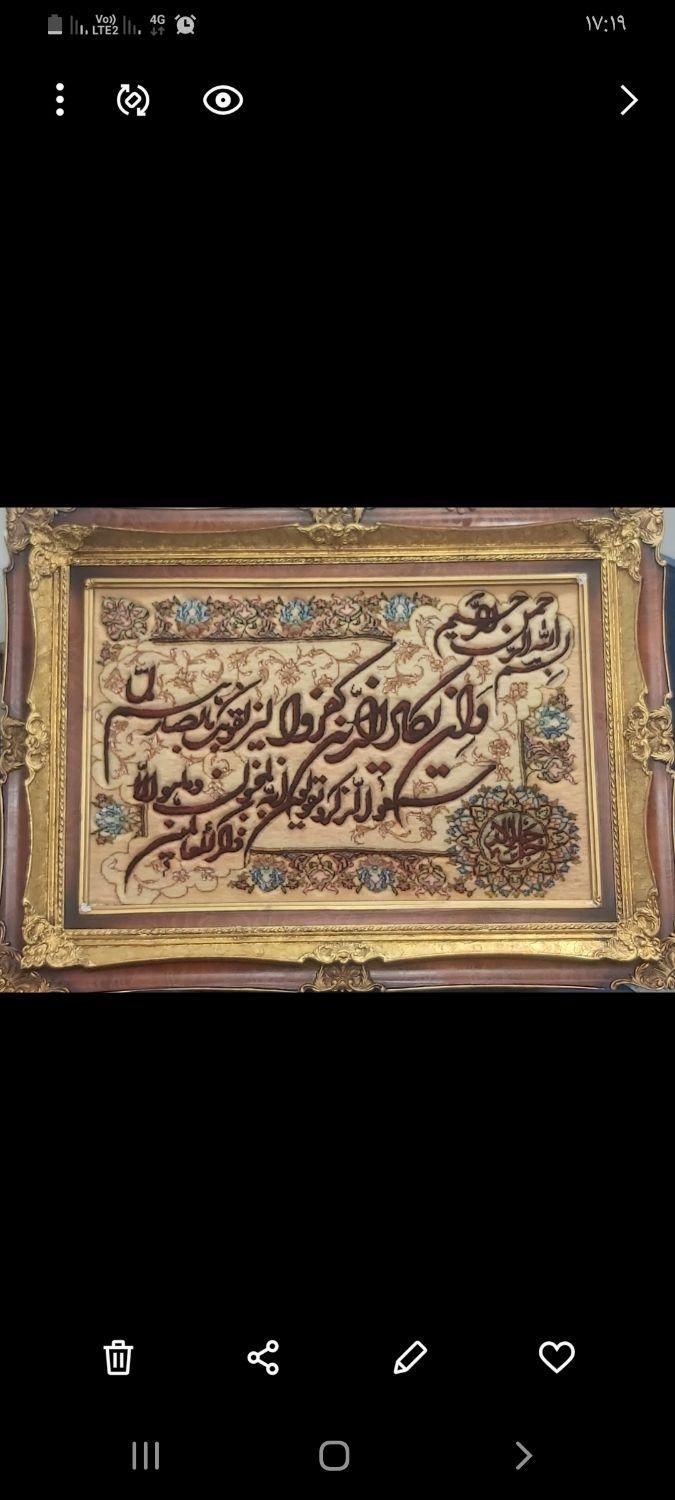 Vo)) 4G ١٧:١٩
LTE2
بسم الله الرحمن الرحیم
وَاِن یکاد الذین کفروا لیزلقونک بابصارهم لمّا
سمعوا الذکر و یقولون انّه لمجنون و ما هو الّا
ذکر للعالمین